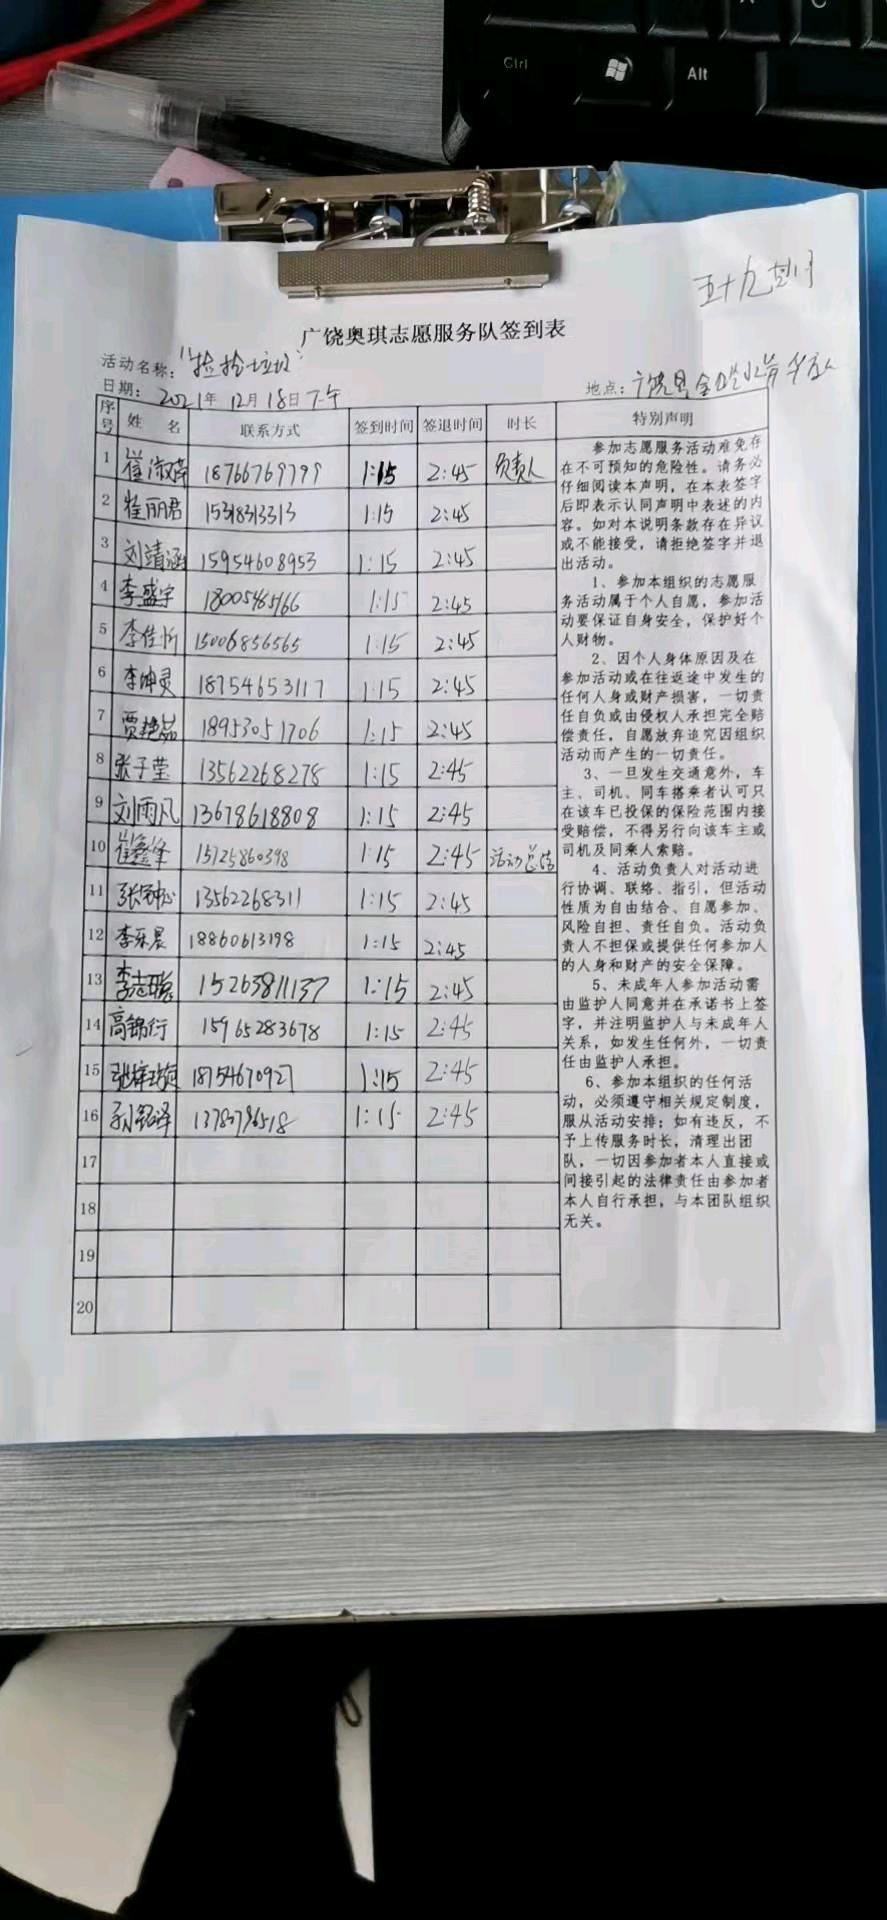 Ctrl
Alt
五十九
广饶奥琪志愿服务队签到表
活动名称："捡拾垃圾"
日期：2021年12月18日下午
地点：广饶县
序号 姓 名 联系方式 签到时间 签退时间 时长 特别声明
1 崔淑 18766769799 1:15 2:45 负责人
2 崔丽君 15318313313 1:15 2:45
3 刘靖涵 15954608953 1:15 2:45
4 李盛宇 18005465166 1:15 2:45
5 李佳忻 15006856565 1:15 2:45
6 李坤灵 18754653117 1:15 2:45
7 贾艳茹 18953051706 1:15 2:45
8 张子莹 13562268278 1:15 2:45
9 刘雨凡 13678618808 1:15 2:45
10 崔鑫锋 15725860398 1:15 2:45 活动总结
11 13562268311 1:15 2:45
12 李乐晨 18860613198 1:15 2:45
13 李志 15263811137 1:15 2:45
14 高锦行 15965283678 1:15 2:45
15 18754670927 1:15 2:45
16 孙铭泽 1:15 2:45
17
18
19
20
参加志愿服务活动难免存
在不可预知的危险性。请务必
仔细阅读本声明，在本表签字
后即表示认同声明中表述的内
容。如对本说明条款存在异议
或不能接受，请拒绝签字并退
出活动。
1、参加本组织的志愿服
务活动属于个人自愿，参加活
动要保证自身安全，保护好个
人财物。
2、因个人身体原因及在
参加活动或在往返途中发生的
任何人身或财产损害，一切责
任自负或由侵权人承担完全赔
偿责任，自愿放弃追究因组织
活动而产生的一切责任。
3、一旦发生交通意外，车
主、司机、同车搭乘者认可只
在该车已投保的保险范围内接
受赔偿，不得另行向该车主或
司机及同乘人索赔。
4、活动负责人对活动进
行协调、联络、指引，但活动
性质为自由结合、自愿参加、
风险自担、责任自负。活动负
责人不担保或提供任何参加人
的人身和财产的安全保障。
5、未成年人参加活动需
由监护人同意并在承诺书上签
字，并注明监护人与未成年人
关系，如发生任何外，一切责
任由监护人承担。
6、参加本组织的任何活
动，必须遵守相关规定制度，
服从活动安排；如有违反，不
予上传服务时长，清理出团
队，一切因参加者本人直接或
间接引起的法律责任由参加者
本人自行承担，与本团队组织
无关。